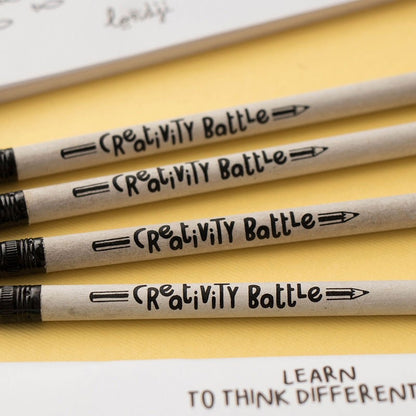 CReatiViTY BattLe
CReatiViTY BattLe
CReatiViTY BattLe
CReatiViTY BattLe
LEARN
TO THINK DIFFERENT